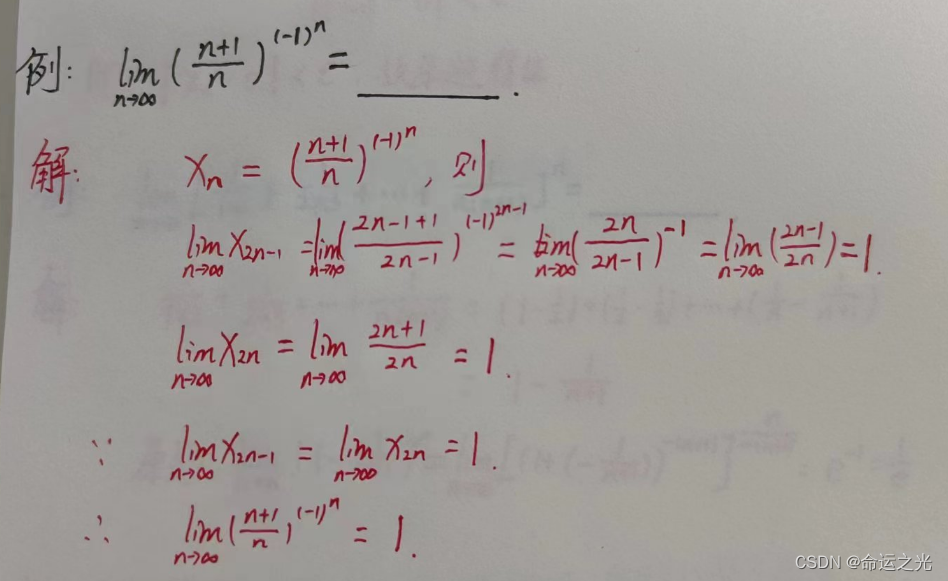 例: lim_{n→∞} (\frac{n+1}{n})^{(-1)^n} = ______ .
解: X_n = (\frac{n+1}{n})^{(-1)^n}, 则
lim_{n→∞} X_{2n-1} = lim_{n→∞} (\frac{2n-1+1}{2n-1})^{(-1)^{2n-1}} = lim_{n→∞} (\frac{2n}{2n-1})^{-1} = lim_{n→∞} (\frac{2n-1}{2n}) = 1.
lim_{n→∞} X_{2n} = lim_{n→∞} \frac{2n+1}{2n} = 1.
∵ lim_{n→∞} X_{2n-1} = lim_{n→∞} X_{2n} = 1.
∴ lim_{n→∞} (\frac{n+1}{n})^{(-1)^n} = 1.
CSDN @命运之光